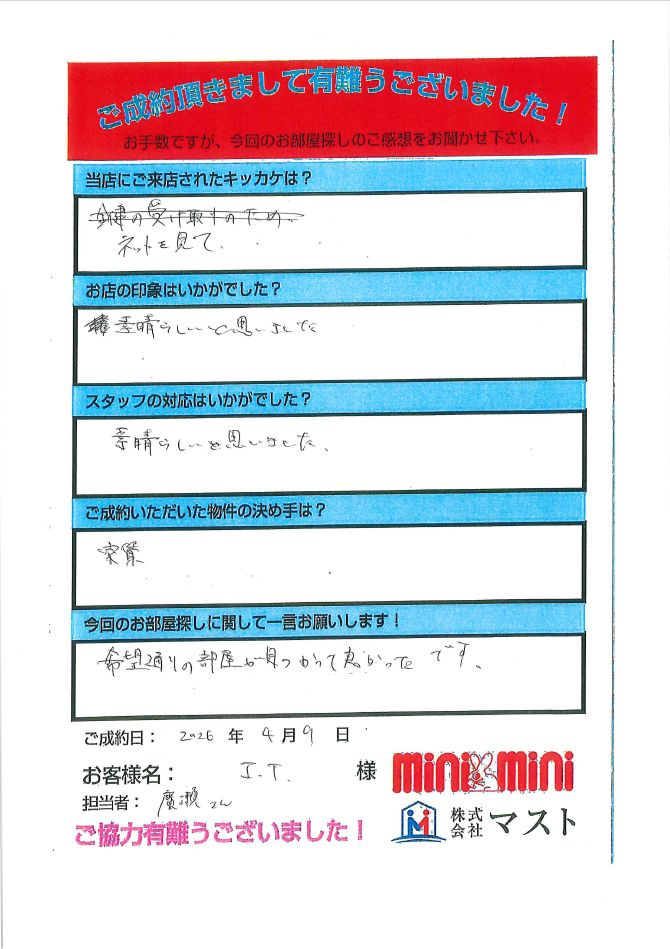 ご成約頂きまして有難うございました！
お手数ですが、今回のお部屋探しのご感想をお聞かせ下さい。
当店にご来店されたキッカケは？
鍵の受け取りのため。
ネットを見て.
お店の印象はいかがでした？
素晴らしいと思いました
スタッフの対応はいかがでした？
素晴らしいと思いました、
ご成約いただいた物件の決め手は？
家賃
今回のお部屋探しに関して一言お願いします！
希望通りの部屋が見つかって良かったです。
ご成約日： 2026 年 4月 9 日
お客様名： I.T. 様
mini mini
担当者： 廣瀬さん
株式会社マスト
ご協力有難うございました！